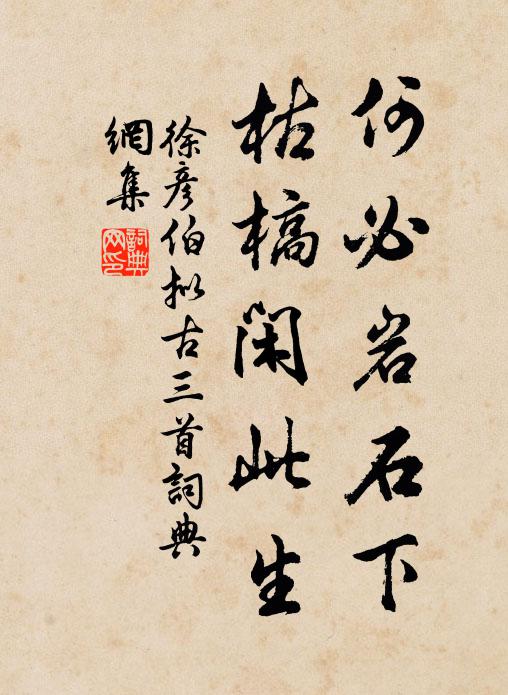 何必岩石下
枯槁闲此生
徐彦伯拟古三首詞典
網集
詞典
网印